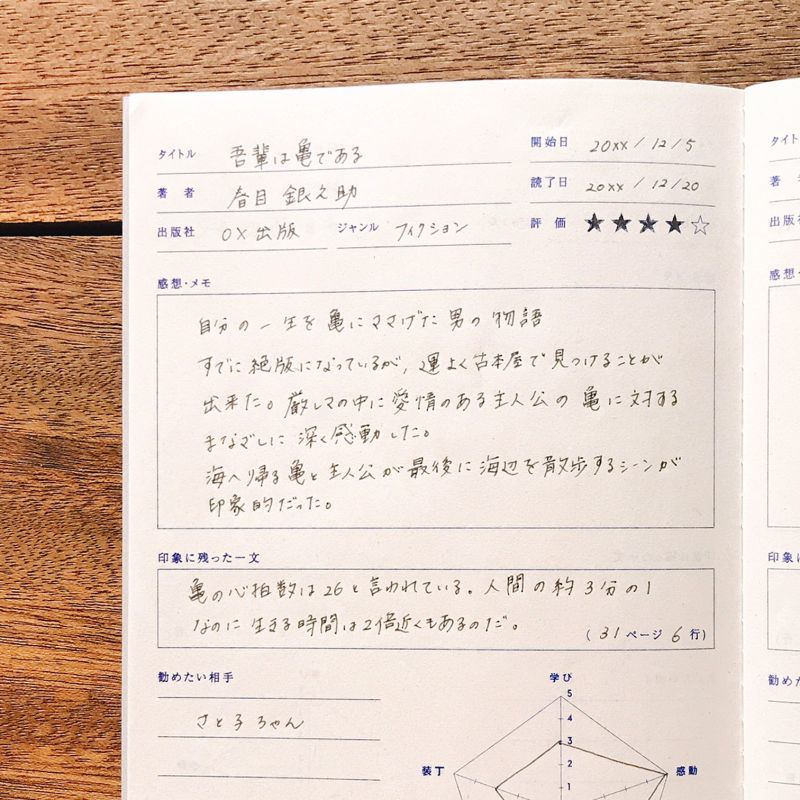 タイトル 吾輩は亀である
開始日 20xx / 12 / 5
著者 春目 銀之助
読了日 20xx / 12 / 20
出版社 ○×出版 ジャンル フィクション
評価 ★★★★☆
感想・メモ
自分の一生を亀にささげた男の物語
すでに絶版になっているが、運よく古本屋で見つけることが
出来た。厳しさの中に愛情のある主人公の亀に対する
まなざしに深く感動した。
海へ帰る亀と主人公が最後に海辺を散歩するシーンが
印象的だった。
印象に残った一文
亀の心拍数は26と言われている。人間の約3分の1
なのに生きる時間は2倍近くもあるのだ。
(31ページ 6行)
勧めたい相手
さと子ちゃん
学び
5
4
3
2
1
装丁
感動
タイト
著
出版社
感想・
印象に
勧めた